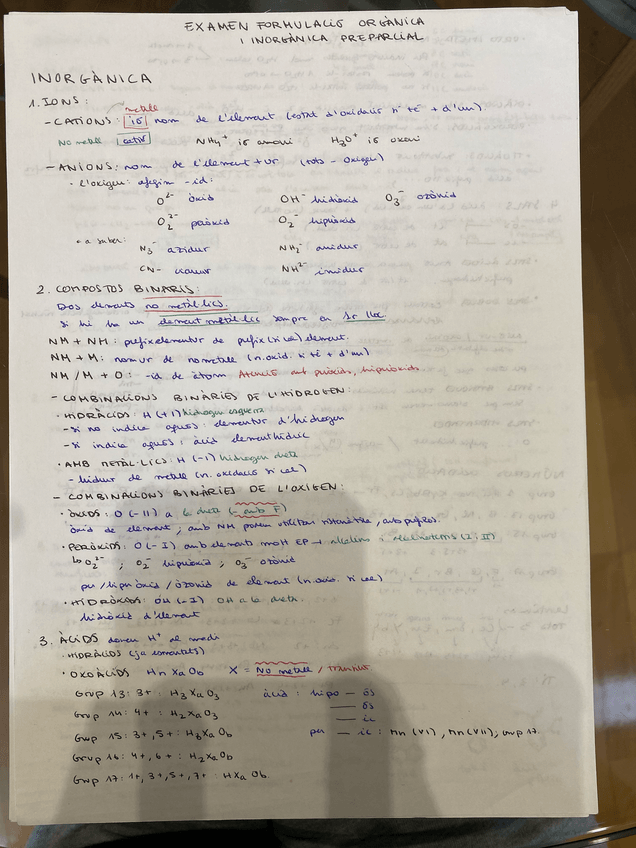 EXAMEN FORMULACIÓ ORGÀNICA
I INORGÀNICA PREPARCIAL
INORGÀNICA
1. IONS:
metall
- CATIONS: ió nom de l'element (estat d'oxidació si té + d'un)
No metall catió NH₄⁺ ió amoni H₃O⁺ ió oxoni
- ANIONS: nom de l'element + ur (tots - oxigen)
· L'oxigen: afegim -id:
O²⁻ òxid OH⁻ hidròxid O₃⁻ ozònid
O₂²⁻ peròxid O₂⁻ hiperòxid
· a saber:
N₃⁻ azidur NH₂⁻ amidur
CN⁻ cianur NH²⁻ imidur
2. COMPOSTOS BINARIS:
Dos elements no metàl·lics.
Si hi ha un element metàl·lic sempre en 1r lloc.
NM + NM: prefixelementur de prefix (si cal) element.
NM + M: nomur de nometall (n. oxid. si té + d'un)
NM / M + O: -id de àtom Atenció amb peròxids, hiperòxids
- COMBINACIONS BINÀRIES DE L'HIDROGEN:
· HIDRÀCIDS: H (+1) hidrogen esquerra
- si no indica aquós: elementur d'hidrogen
- si indica aquós: àcid elementhídric
· AMB METÀL·LICS: H (-1) hidrogen dreta
- hidrur de metall (n. oxidació si cal)
- COMBINACIONS BINÀRIES DE L'OXIGEN:
· ÒXIDS: O (-II) a la dreta (- amb F)
òxid de element; amb NM podem utilitzar sistemàtica, amb prefixos.
· PERÒXIDS: O (-I) amb elements molt EP → alcalins i alcalinoterris (I i II)
↳ O₂²⁻ ; O₂⁻ hiperòxid ; O₃⁻ ozònid
per / hiperòxid / ozònid de element (n. oxid. si cal)
· HIDRÒXIDS: OH (-I) OH a la dreta.
hidròxid d'element
3. ÀCIDS donen H⁺ al medi
· HIDRÀCIDS (ja esmentats)
· OXOÀCIDS Hn Xa Ob X = No metall / transició
Grup 13: 3+ : H₃ Xa O₃ àcid: hipo — ós
Grup 14: 4+ : H₂ Xa O₃ — ós
— ic
Grup 15: 3+, 5+ : H₃ Xa Ob per — ic : Mn (VI), Mn (VII), Grup 17.
Grup 16: 4+, 6+ : H₂ Xa Ob
Grup 17: 1+, 3+, 5+, 7+ : H Xa Ob.